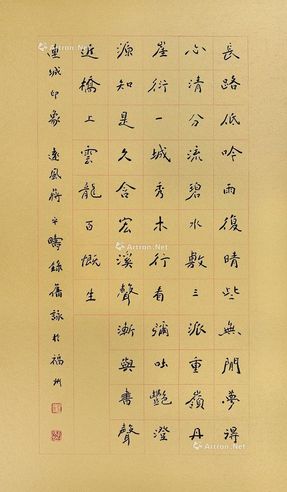 長路低吟雨復晴些無閒夢得
心清分流碧水敷三派重嶺丹
崖衍一城秀木行看彌吐艷澄
源知是久含宏溪聲漸與書聲
近橋上雲龍百慨生
連城印象 遠風蔣平疇錄舊詠於福州
Artron.Net
Artron.Net
Artron.Net